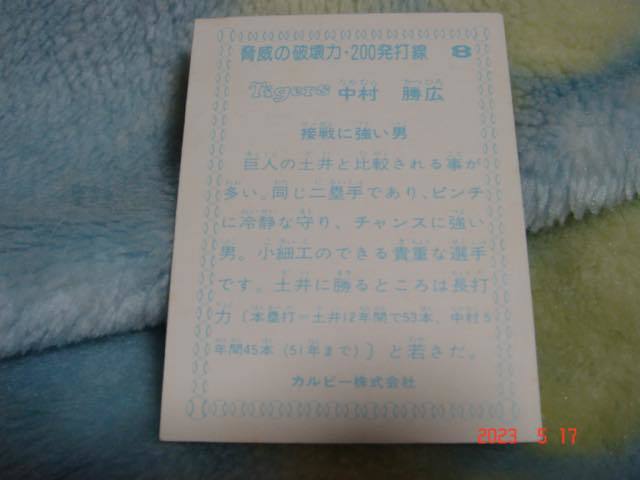 脅威の破壊力・200発打線 8
Tigers 中村 勝広
接戦に強い男
巨人の土井と比較される事が
多い。同じ二塁手であり、ピンチ
に冷静な守り、チャンスに強い
男。小細工のできる貴重な選手
です。土井に勝るところは長打
力〔本塁打＝土井12年間で53本、中村5
年間45本（51年まで）〕と若さだ。
カルビー株式会社
2023 5 17